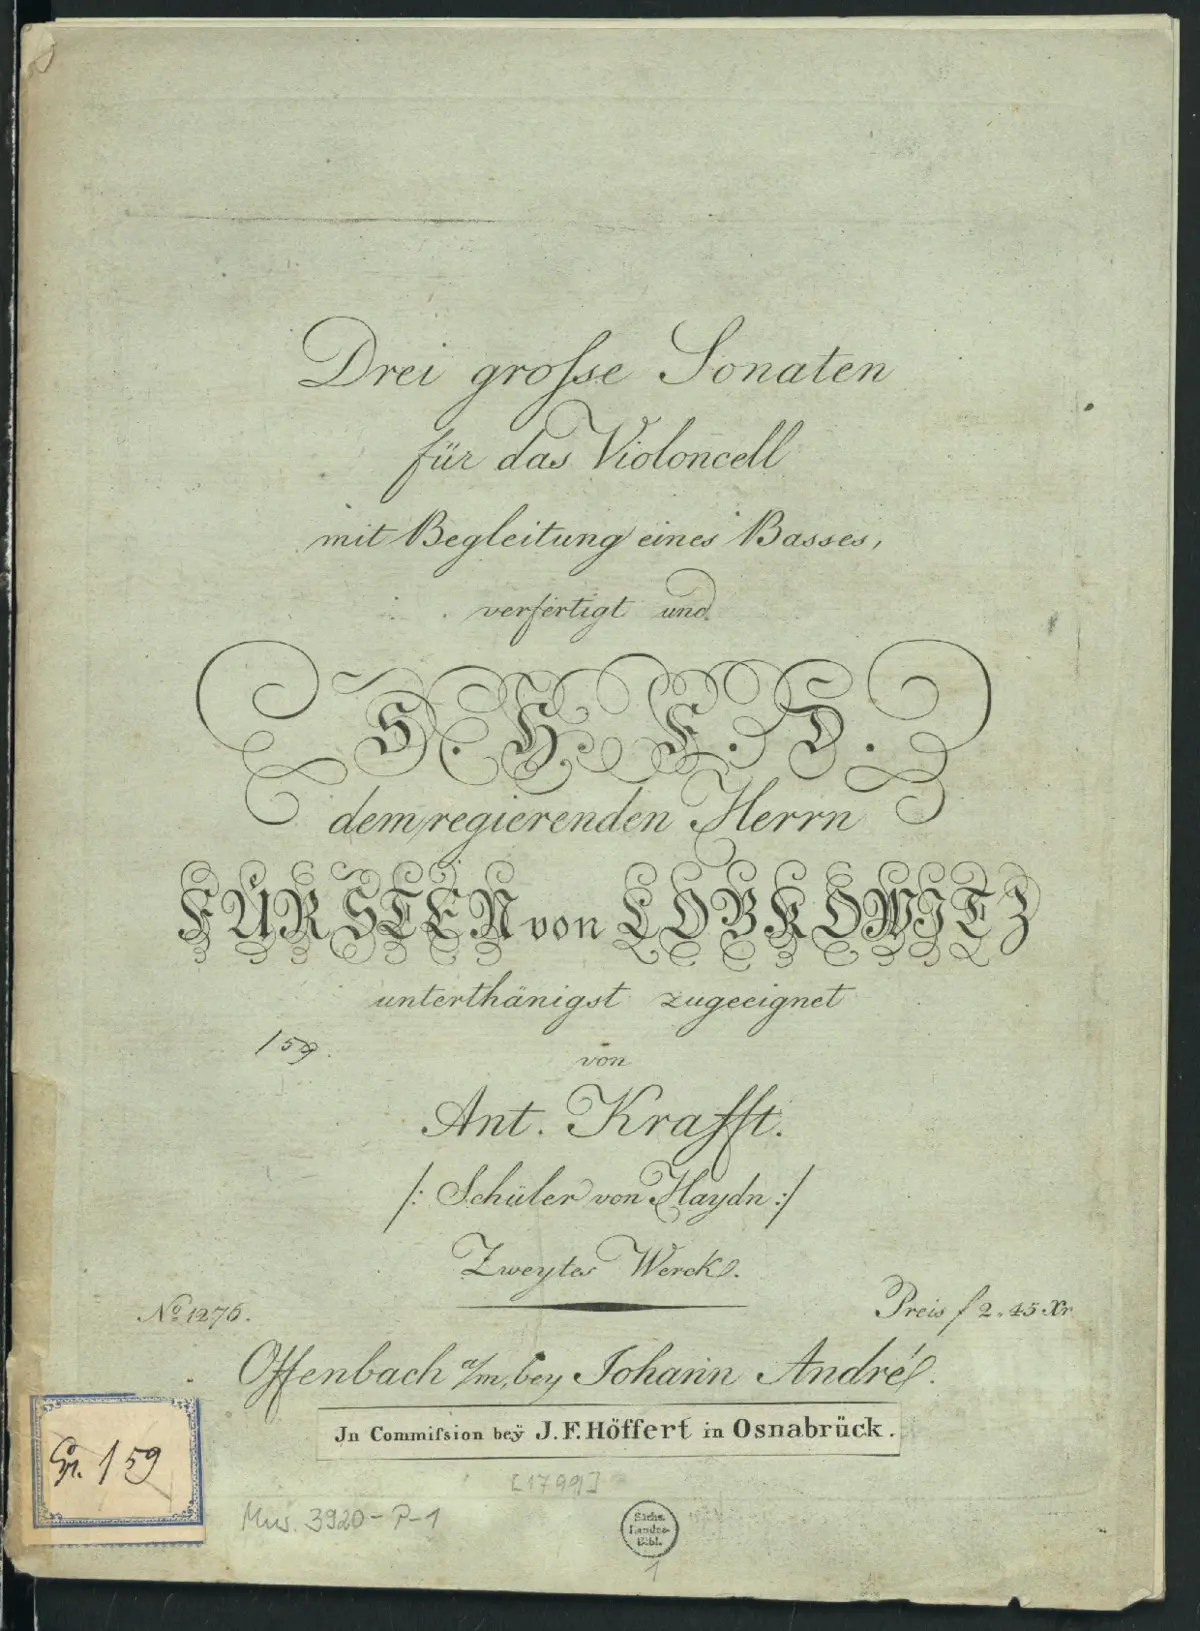 Drei grosse Sonaten
für das Violoncell
mit Begleitung eines Basses,
verfertigt und
S. H. F. D.
dem regierenden Herrn
FÜRSTEN von LOBKOWITZ
unterthänigst zugeeignet
159.
von
Ant. Krafft.
/: Schüler von Haydn :/
Zweytes Werck.
No 1276.
Preis f 2. 45 Xr
Offenbach a/m, bey Johann André.
Jn Commiſsion beÿ J. F. Höffert in Osnabrück.
159
[1799]
Mus. 3920-P-1
Sächs.
Landes-
Bibl.
1